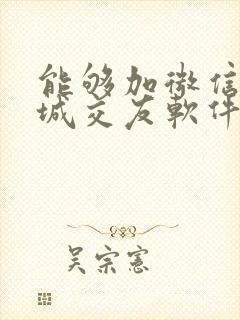 能够加微信
城交友軟件
吴宗憲